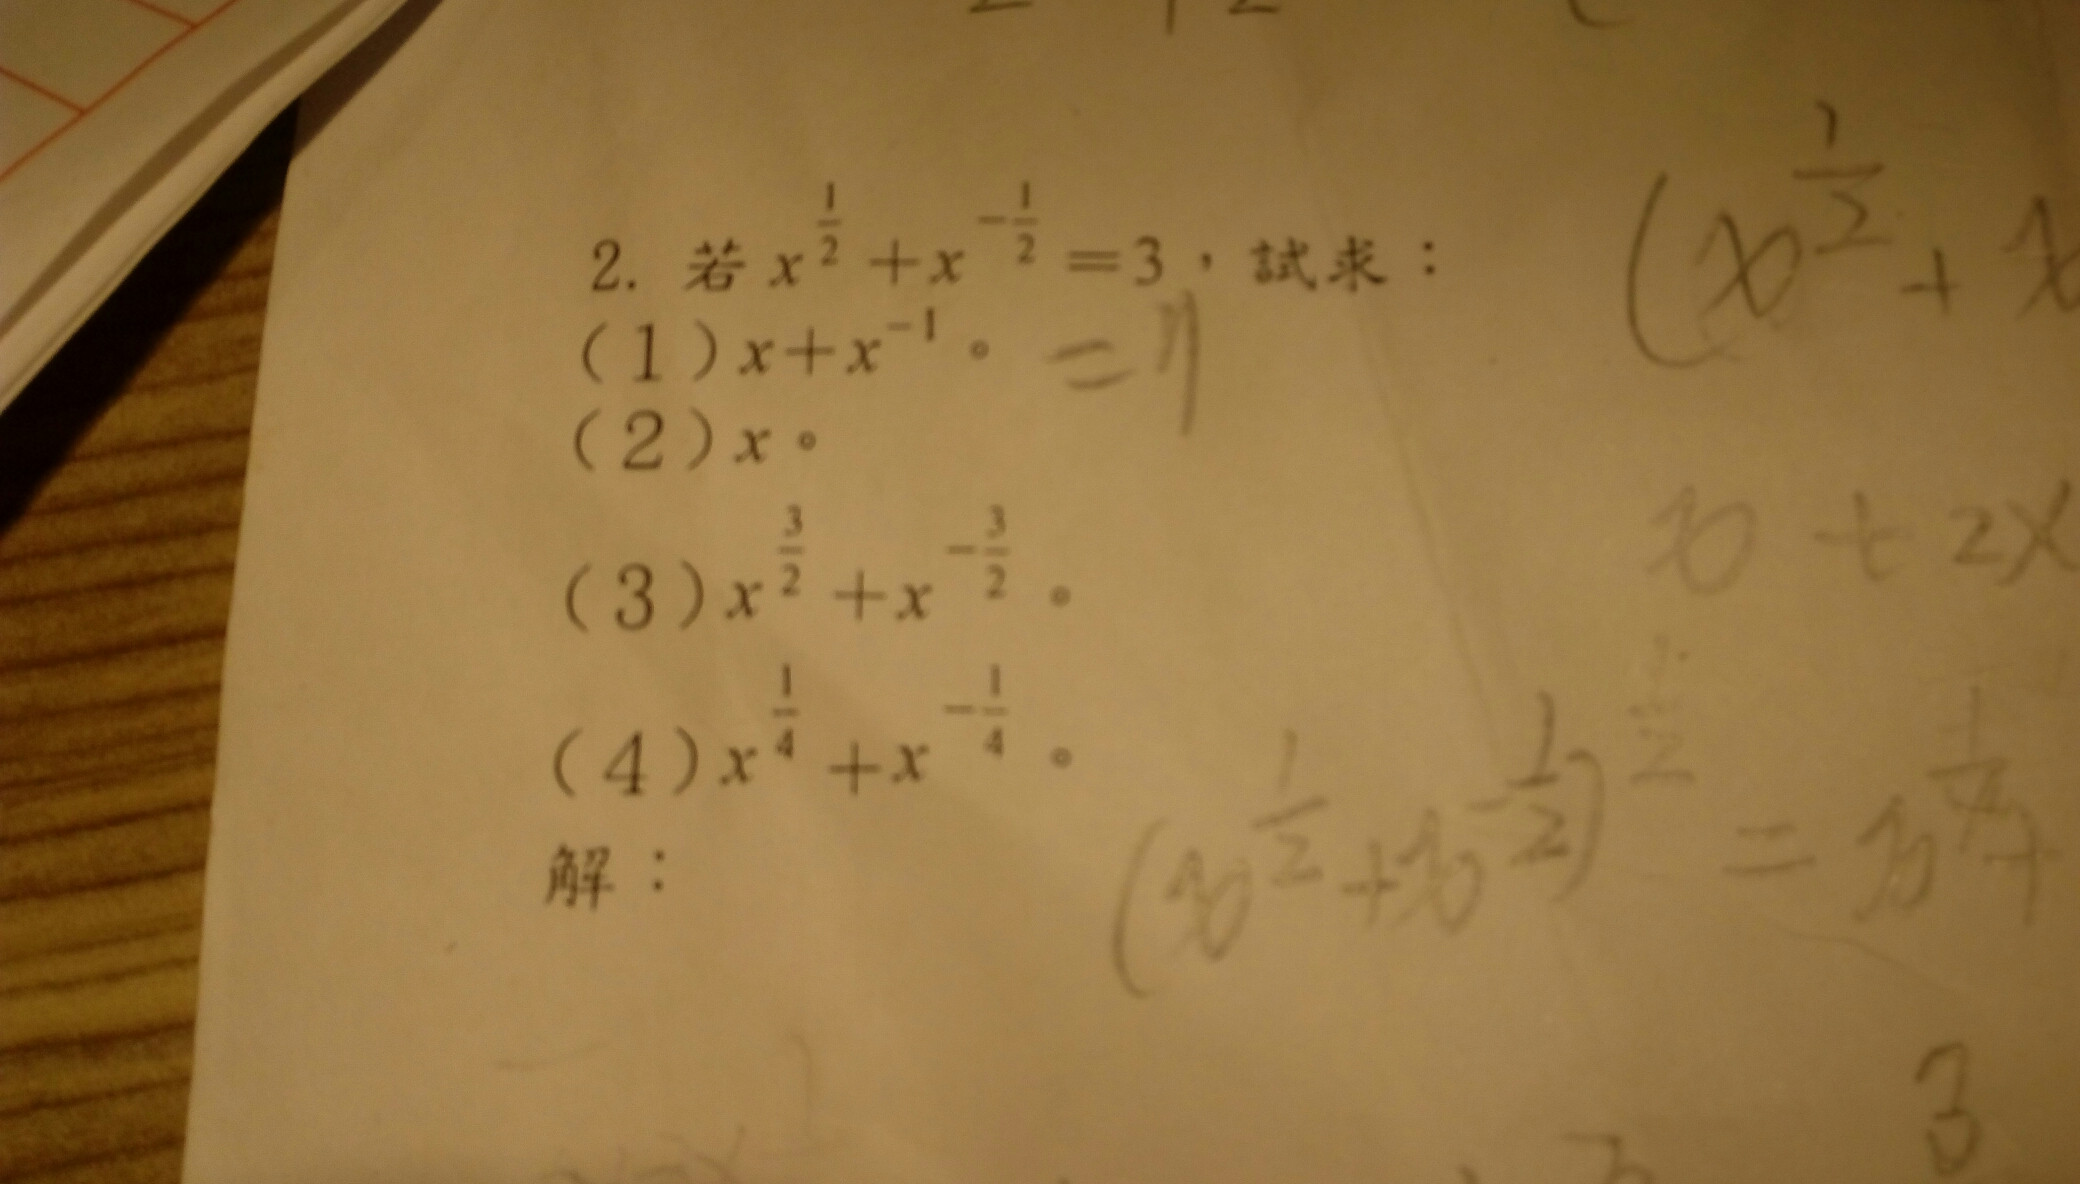 2. 若 x^{\frac{1}{2}}+x^{-\frac{1}{2}}=3，試求：
(1) x+x^{-1}。 =7
(2) x。
(3) x^{\frac{3}{2}}+x^{-\frac{3}{2}}。
(4) x^{\frac{1}{4}}+x^{-\frac{1}{4}}。
解：
(x^{\frac{1}{2}}+x
x+2x
(x^{\frac{1}{2}}+x^{-\frac{1}{2}})^{\frac{1}{2}}=x^{\frac{1}{4}}+
3